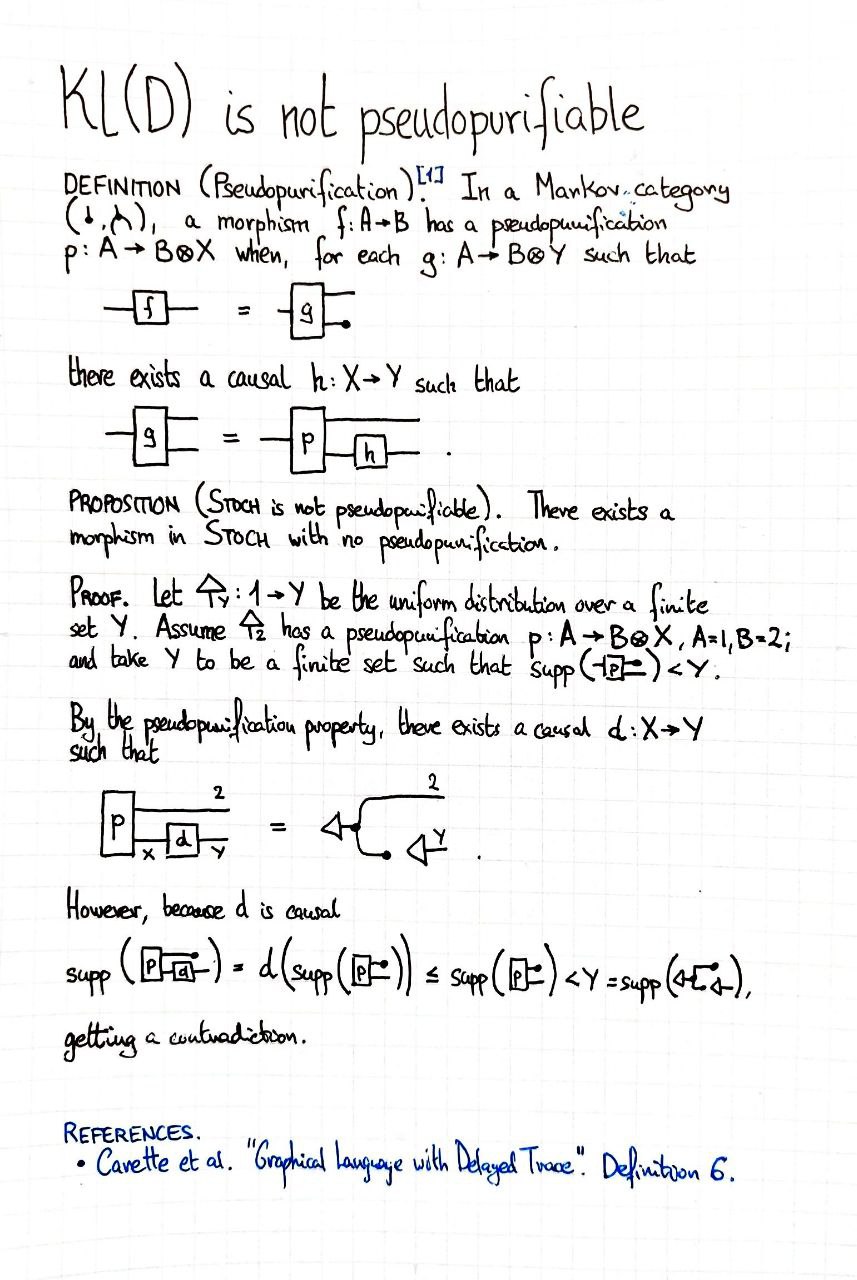 KL(D) is not pseudopurifiable
DEFINITION (Pseudopurification).[1] In a Markov category
( , ), a morphism f: A→B has a pseudopurification
p: A → B⊗X when, for each g: A → B⊗Y such that
f = g
there exists a causal h: X→Y such that
g = p h .
PROPOSITION (STOCH is not pseudopurifiable). There exists a
morphism in STOCH with no pseudopurification.
PROOF. Let Y: 1→Y be the uniform distribution over a finite
set Y. Assume 2 has a pseudopurification p: A → B⊗X, A=1, B=2;
and take Y to be a finite set such that supp(p) < Y.
By the pseudopurification property, there exists a causal d: X→Y
such that
p 2 X d Y = 2 Y .
However, because d is causal
supp (p d) = d(supp(p)) ≤ supp(p) < Y = supp( ),
getting a contradiction.
REFERENCES.
• Carette et al. "Graphical Language with Delayed Trace". Definition 6.